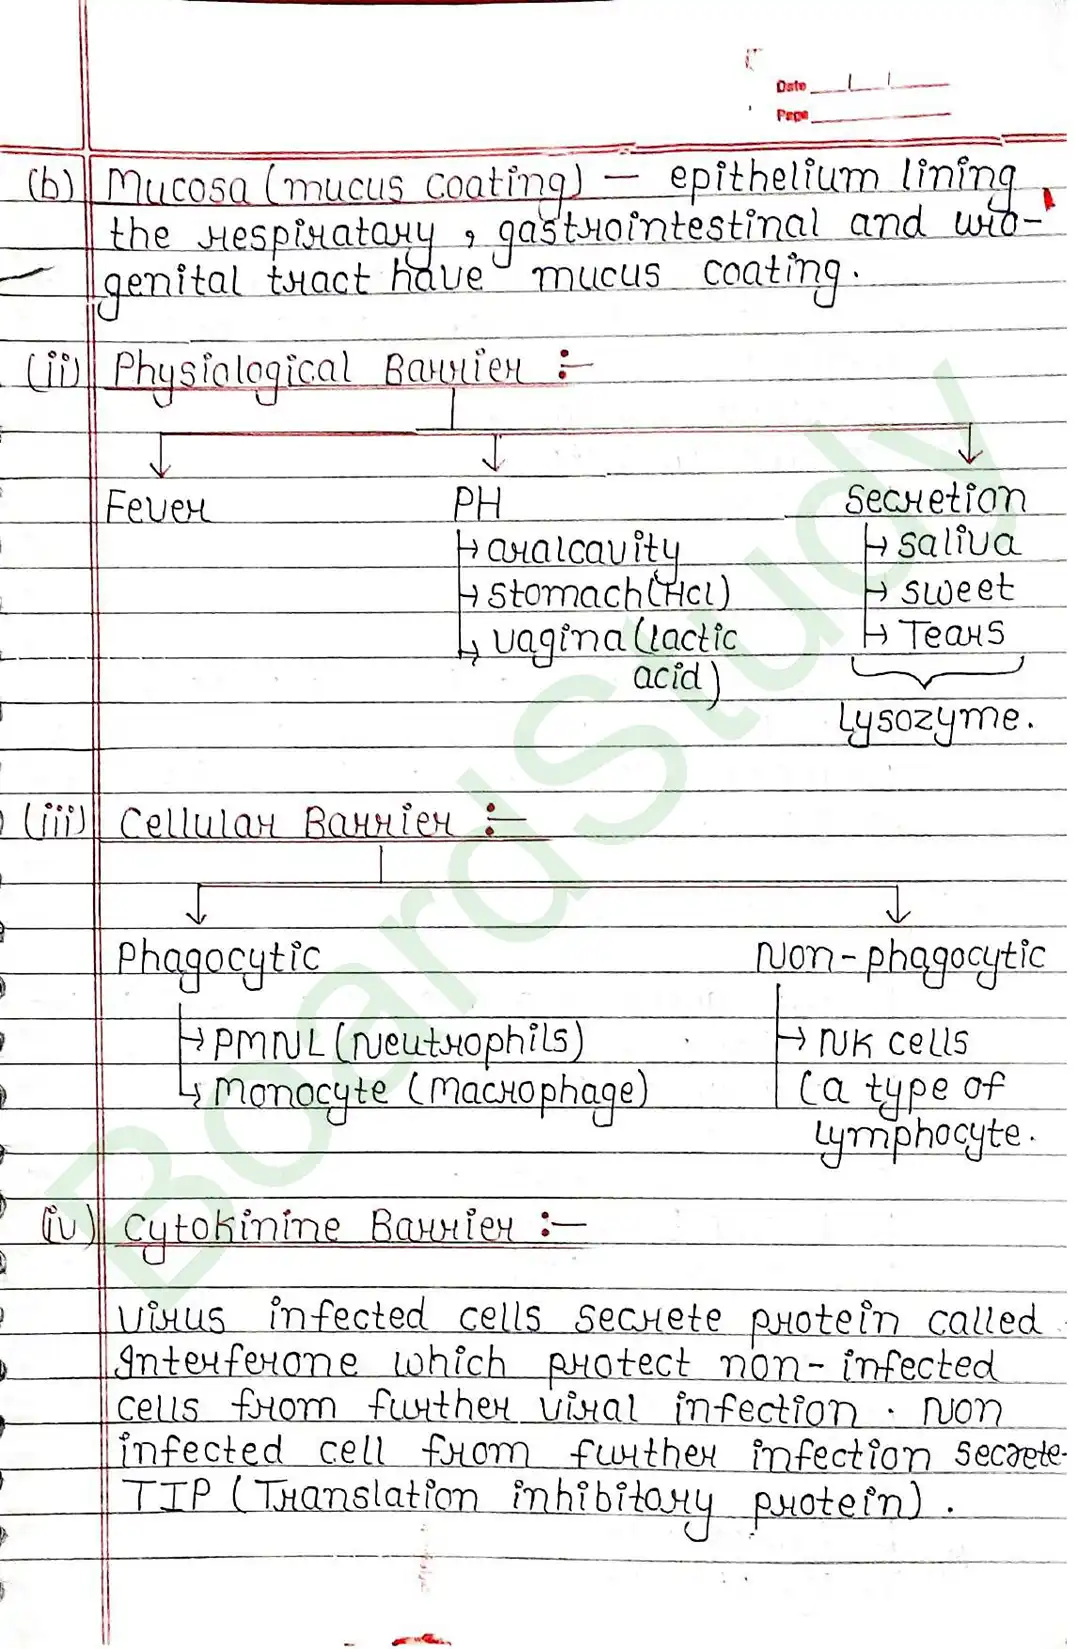 Date
Page
(b) Mucosa (mucus coating) — epithelium lining
the respiratory, gastrointestinal and uro-
genital tract have mucus coating.
(ii) Physiological Barrier :-
Fever PH Secretion
→ oralcavity → saliva
→ stomach(Hcl) → sweet
→ vagina (lactic → Tears
acid)
Lysozyme.
(iii) Cellular Barrier :-
Phagocytic Non-phagocytic
→ PMNL (Neutrophils) → NK cells
→ Monocyte (Macrophage) (a type of
Lymphocyte.
(iv) Cytokinine Barrier :-
Virus infected cells secrete protein called
Interferone which protect non-infected
cells from further viral infection. Non
infected cell from further infection secrete
TIP (Translation inhibitory protein).
BoardStudy